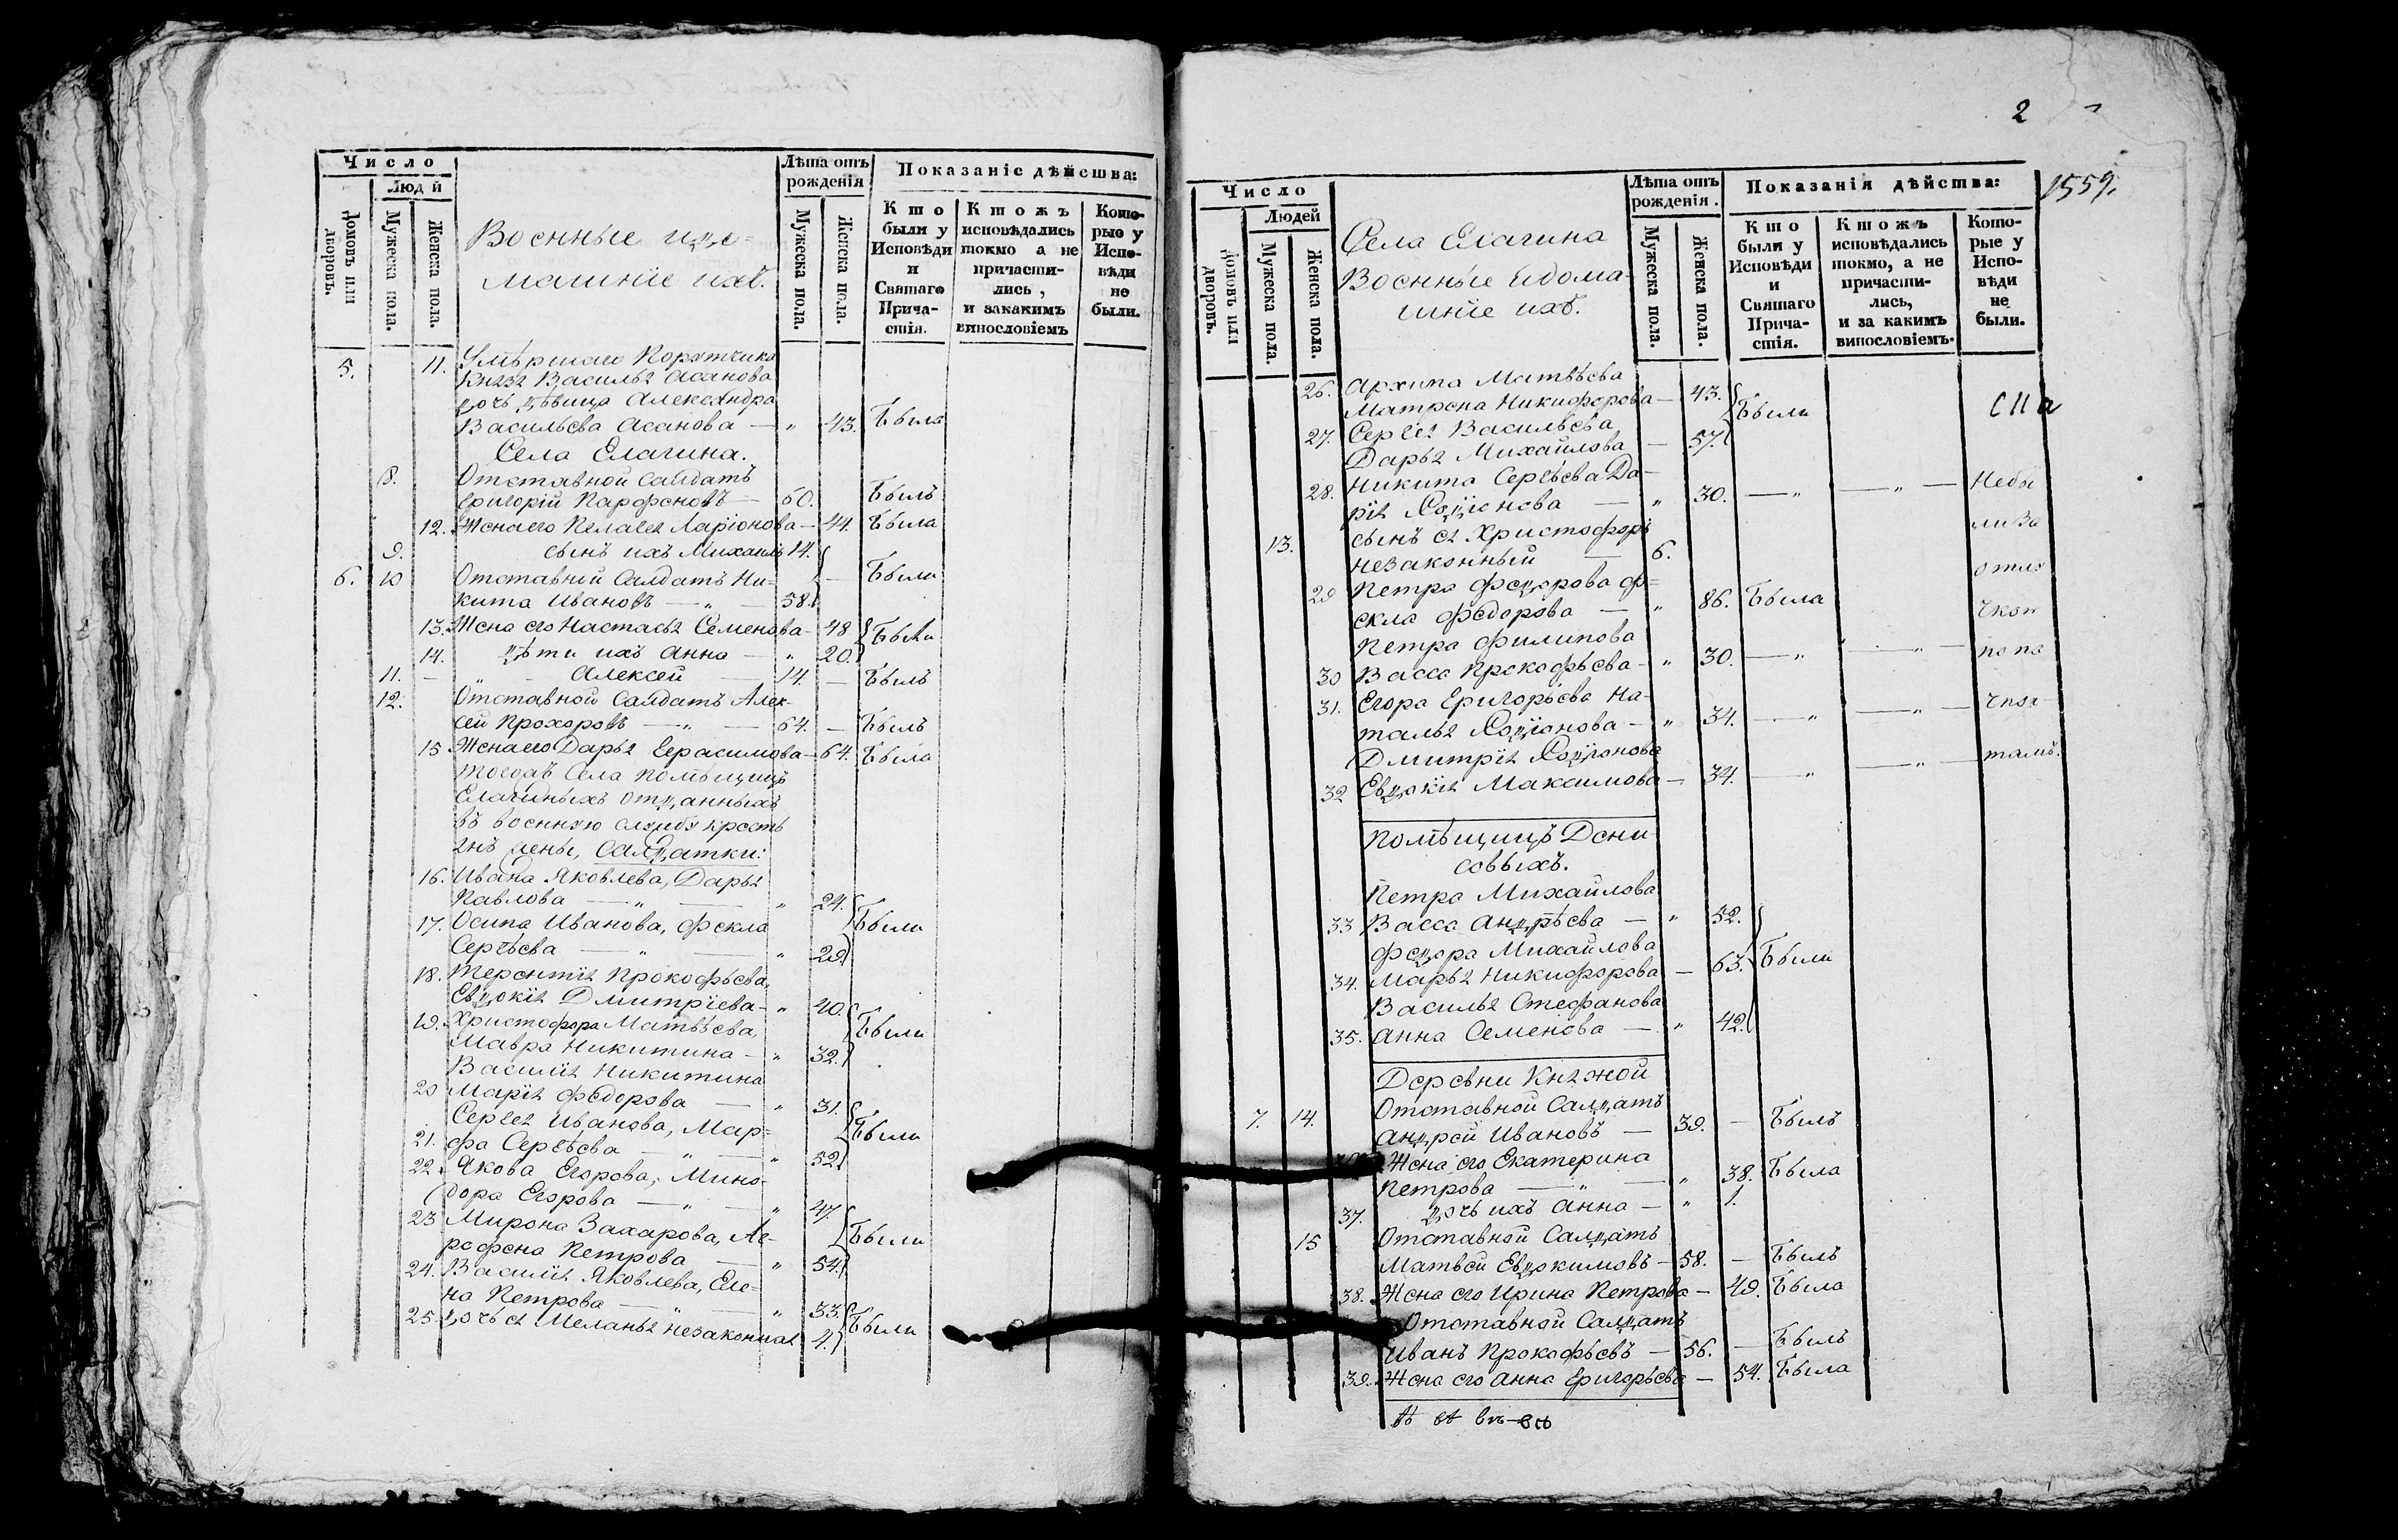 Число
Людй
Домовъ или дворовъ.
Мужеска пола.
Женска пола.
Военные и до=
машніе ихъ.
Лѣта отъ рожденія
Мужеска пола.
Женска пола.
Показаніе дѣйства:
Кто были у Исповѣди и Святаго Прича-стія.
Ктожъ исповѣдались токмо а не причасти-лись, и закакимъ винословіемъ
Кото-рые у Испо-вѣди не были.
5. 11. Умѣршаго Порутчика
Князя Василья Асанова
дочь дѣвица Александра
Васильева Асанова — „ 43. Была
Села Елагина.
8. Отставной Салдатъ
Григорій Парфеновъ — 60. Былъ
12. Жена его Пелагея Ларіонова — 44. Была
9. сынъ ихъ Михаилъ 14.
6. 10 Отставной Салдатъ Ни= — Были
кита Ивановъ — „ — 58.
13. Жена его Настасья Семенова — 48 Были
14. дѣти ихъ Анна — „ 20.
11. — „ — Алексей — 14. — Былъ
12. Отставной Салдатъ Алек-
сей Прохоровъ — „ — 64. — Былъ
15 Жена его Дарья Герасимова — 64. Была
тогожъ Села помѣщицъ
Елагиныхъ отданныхъ
въ военную службу кресть
янъ жены, Салдатки:
16. Ивана Яковлева, Дарья
Павлова — „ — „ 24.
17. Осипа Иванова, Фекла Были
Сергѣева — „ — „ 29.
18. Терентія Прокофьева,
Евдокія Дмитріева — „ 40.
19. Христофора Матвѣева, Были
Мавра Никитина — „ 32.
Василія Никитина
20 Марія Федорова — „ 31.
Сергея Иванова, Мар= Были
21. фа Сергѣева — „ — „ 52.
22. Якова Егорова, Мино-
дора Егорова — „ — „ 47.
23 Мирона Захарова, Аг- Были
рофена Петрова — „ 54.
24. Василія Яковлева, Еле-
на Петрова — „ — „ 33. Были
25. дочь ея Меланья незаконная 4.
2
1559.
Число
Людей
Домовъ или дворовъ.
Мужеска пола.
Женска пола.
Села Елагина
Военные и дома-
шніе ихъ.
Лѣта отъ рожденія.
Мужеска пола.
Женска пола.
Показанія дѣйства:
Кто были у Исповѣди и Святаго Прича-стія.
Ктожъ исповѣдались токмо, а не причасти-лись, и за какимъ винословіемъ.
Кото-рые у Испо-вѣди не были.
26. Архипа Матвѣева
Матрена Никифорова — 43. Были
27. Сергея Васильева
Дарья Михайлова — 57.
28. Никита Сергѣева Да- Небы
рія Родіонова — „ 30. — „ — „ —
13. сынъ ея Христофоръ ли За
незаконный — 6.
29 Петра Федорова Фе= отлу
екла Федорова — „ 86. Была чкои
Петра Филипова
30 Васса Прокофьева — „ 30. — „ — „ — по па
31. Егора Григорьева На-
талья Родіонова — „ 34. — „ — „ — спор
Дмитрія Родіонова
32 Евдокія Максимова — 34. — „ — „ — тамъ.
помѣщицъ Дени
совыхъ.
Петра Михайлова
33 Васса Андрѣева — „ 52.
Федора Михайлова
34. Марья Никифорова — 63. Были
Василья Стефанова
35. Анна Семенова — „ 42.
Деревни Княжой
7. 14. Отставной Салдатъ
Андрей Ивановъ — 39. — Былъ
Жена его Екатерина
Петрова — „ — „ 38. Была
37. дочь ихъ Анна — „ 1.
15 Отставной Салдатъ
Матвей Евдокимовъ — 58. — Былъ
38. Жена его Ирина Петрова — 49. Была
Отставной Салдатъ
Иванъ Прокофьевъ — 56. — Былъ
39. Жена его Анна Григорьева — 54. Была